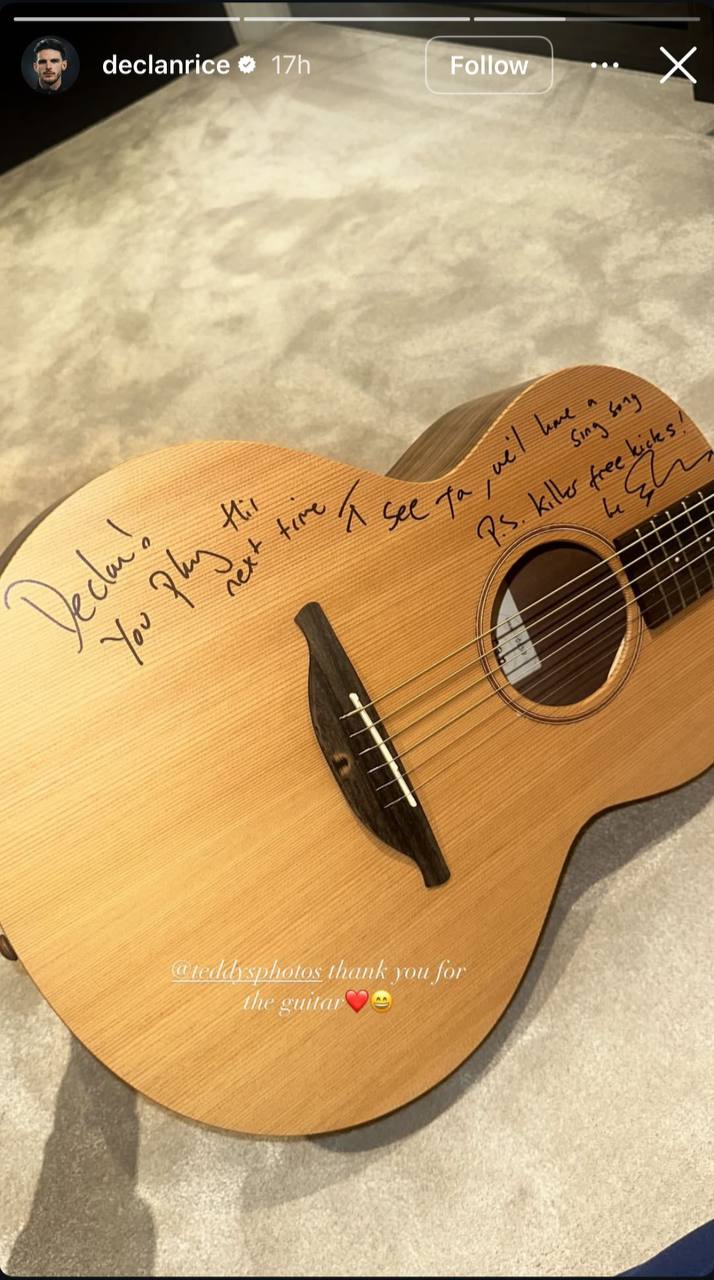 declanrice 17h Follow
Declan!
You play this
next time
I see ya, we'll have a
sing song
P.S. killer free kicks!
@teddysphotos thank you for
the guitar❤️😄